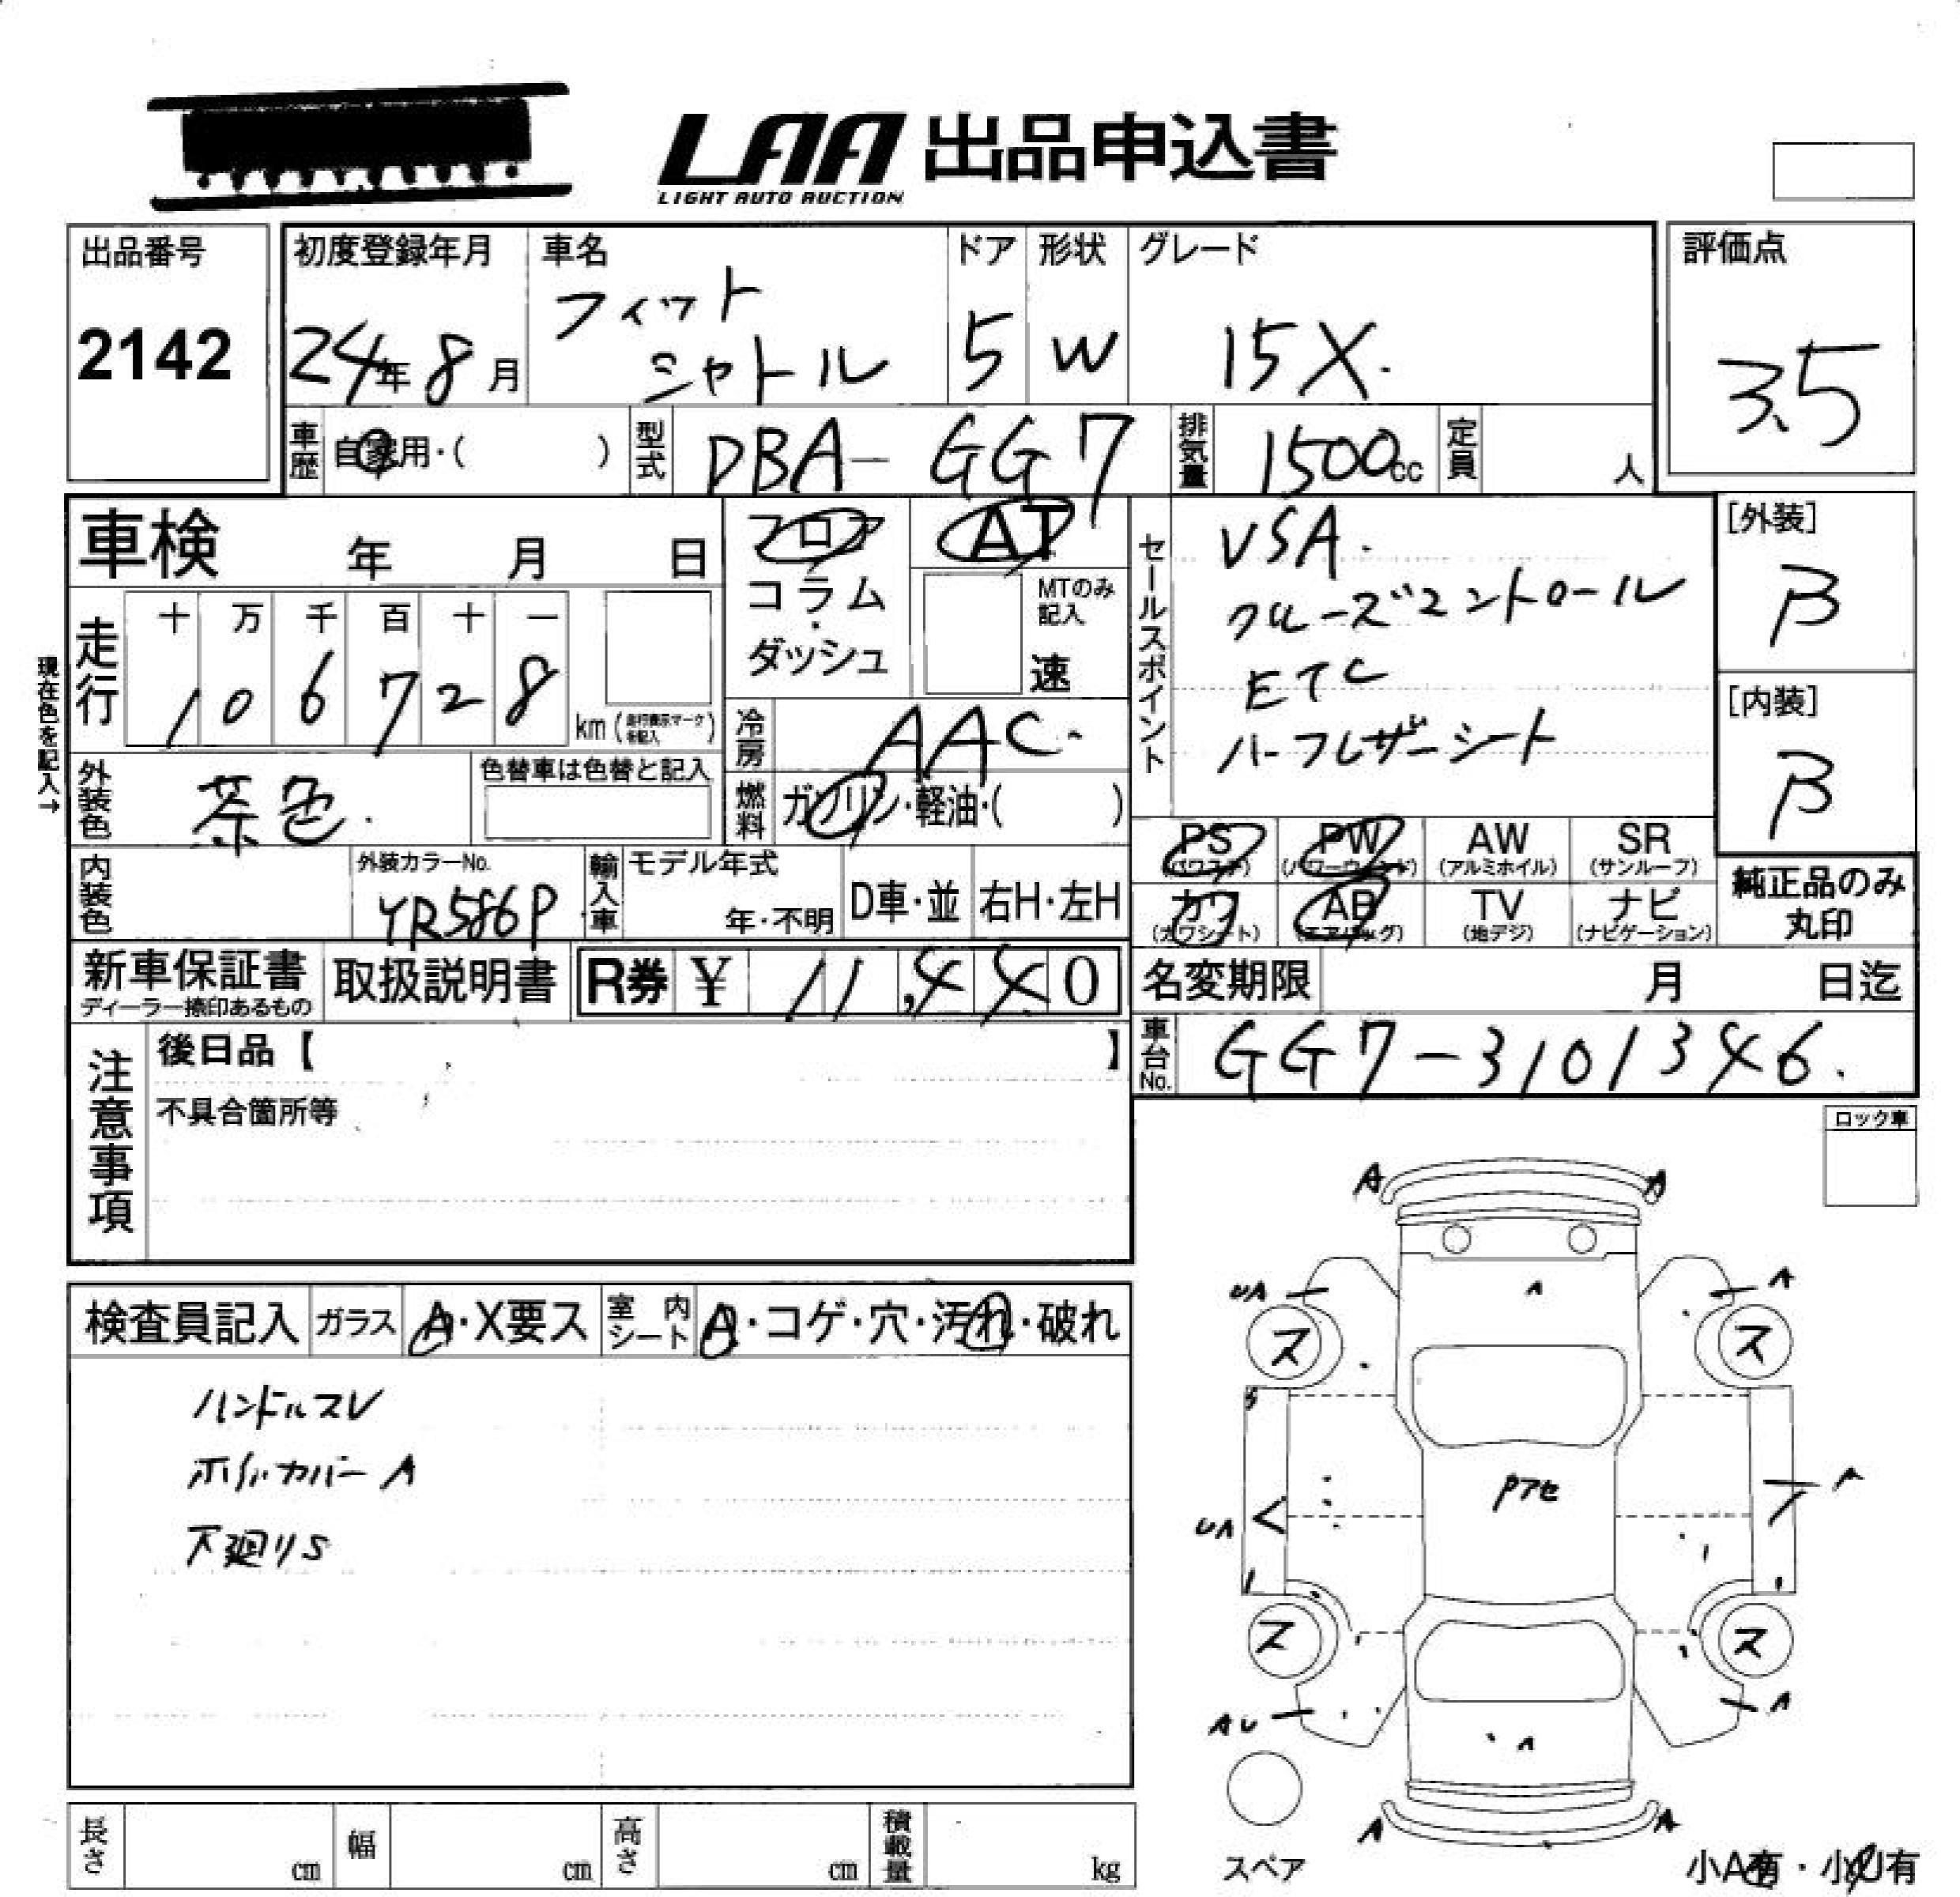 LAA 出品申込書
LIGHT AUTO AUCTION
出品番号
2142
初度登録年月
24年 8月
車名
フィット
シャトル
ドア
5
形状
W
グレード
15X.
評価点
3.5
車歴 自家用・( )
型式 DBA-GG7
排気量 1500cc
定員 人
車検 年 月 日
フロア
コラム
・
ダッシュ
AT
MTのみ
記入
速
セールスポイント
VSA.
クルーズコントロール
ETC
ハーフレザーシート
[外装]
β
[内装]
β
現在色を記入→
走行
十 万 千 百 十 一
1 0 6 7 2 8
km (走行表示マークを記入)
冷房 AAC.
燃料 ガソリン・軽油・( )
外装色 茶色.
色替車は色替と記入
内装色
外装カラーNo.
YR586P
輸入車
モデル年式
年・不明
D車・並
右H・左H
PS
(パワステ)
PW
(パワーウィンド)
AW
(アルミホイル)
SR
(サンルーフ)
カワ
(カワシート)
AB
(エアバッグ)
TV
(地デジ)
ナビ
(ナビゲーション)
純正品のみ
丸印
新車保証書
ディーラー捺印あるもの
取扱説明書
R券 ¥ 11,440
名変期限 月 日迄
車台No. GG7-3101346.
注意事項
後日品【 】
不具合箇所等
ロック車
検査員記入
ガラス A・X要ス
室内シート A・コゲ・穴・汚れ・破れ
ハンドルスレ
ホイルカバーA
下廻りS
A A
UA A A
ス ス
S
Pアセ
A
UA
ス ス
AU A A
A A
スペア
小A有・小U有
長さ cm
幅 cm
高さ cm
積載量 kg